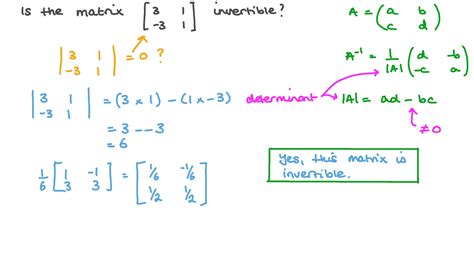 Is the matrix [3 1 -3 1] invertible?
A = (a b c d)
|3 1 -3 1| = 0 ?
A⁻¹ = 1/|A| (d -b -c a)
|3 1 -3 1| = (3 × 1) - (1 × -3)
determinant
|A| = ad - bc
≠0
= 3 - -3
= 6
1/6 [1 -1 3 3] = [1/6 -1/6 1/2 1/2]
Yes, this matrix is
invertible.